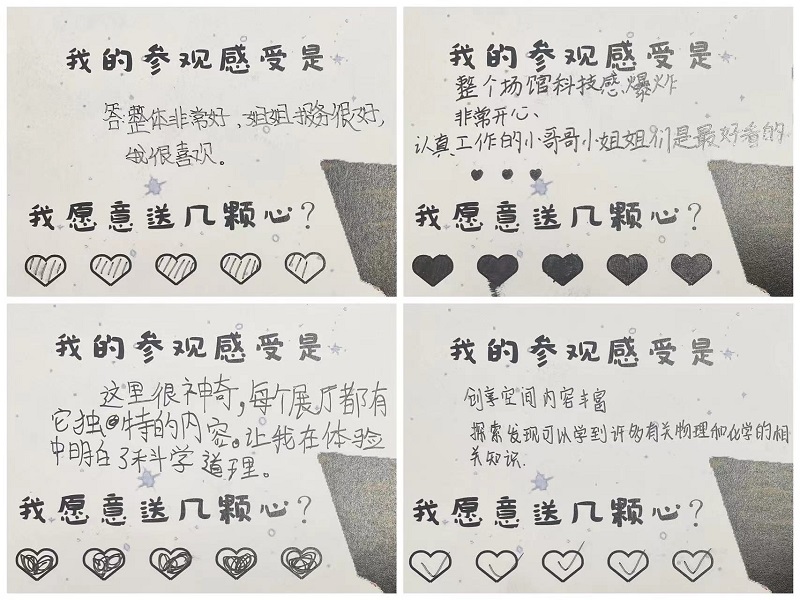 我的参观感受是
答:整体非常好,姐姐服务很好,
我很喜欢。
我愿意送几颗心?
我的参观感受是
整个场馆科技感爆炸
非常开心、
认真工作的小哥哥小姐姐们是最好看的
我愿意送几颗心?
我的参观感受是
这里很神奇,每个展厅都有
它独特的内容。让我在体验
中明白了科学道理。
我愿意送几颗心?
我的参观感受是
创享空间内容丰富
探索发现可以学到许多有关物理和化学的相
关知识.
我愿意送几颗心?